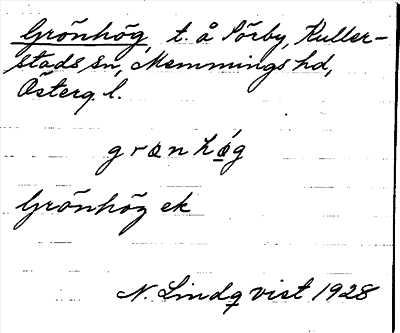 Grönhög, t. å Pörby, Kuller-
stads sn, Memmings hd,
Österg. l.
Grönhög ek
N. Lindqvist 1928